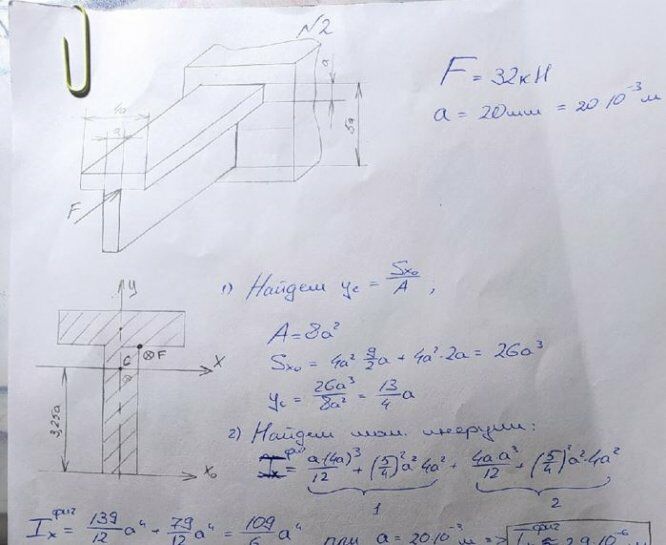 N2
F = 32кН
a = 20мм = 20·10⁻³ м
a
4a
a
5a
F
y
1) Найдем y_c = S_x₀/A ,
A = 8a²
F
C
x
S_x₀ = 4a² 9/2 a + 4a²·2a = 26a³
3,25a
y_c = 26a³/8a² = 13/4 a
2) Найдем мом. инерции:
x₀
I_x^фиг = a·(4a)³/12 + (5/4)²a²·4a² + 4a a³/12 + (5/4)²a²·4a²
1
2
I_x^фиг = 139/12 a⁴ + 79/12 a⁴ = 109/6 a⁴ при a = 20·10⁻³ м =>